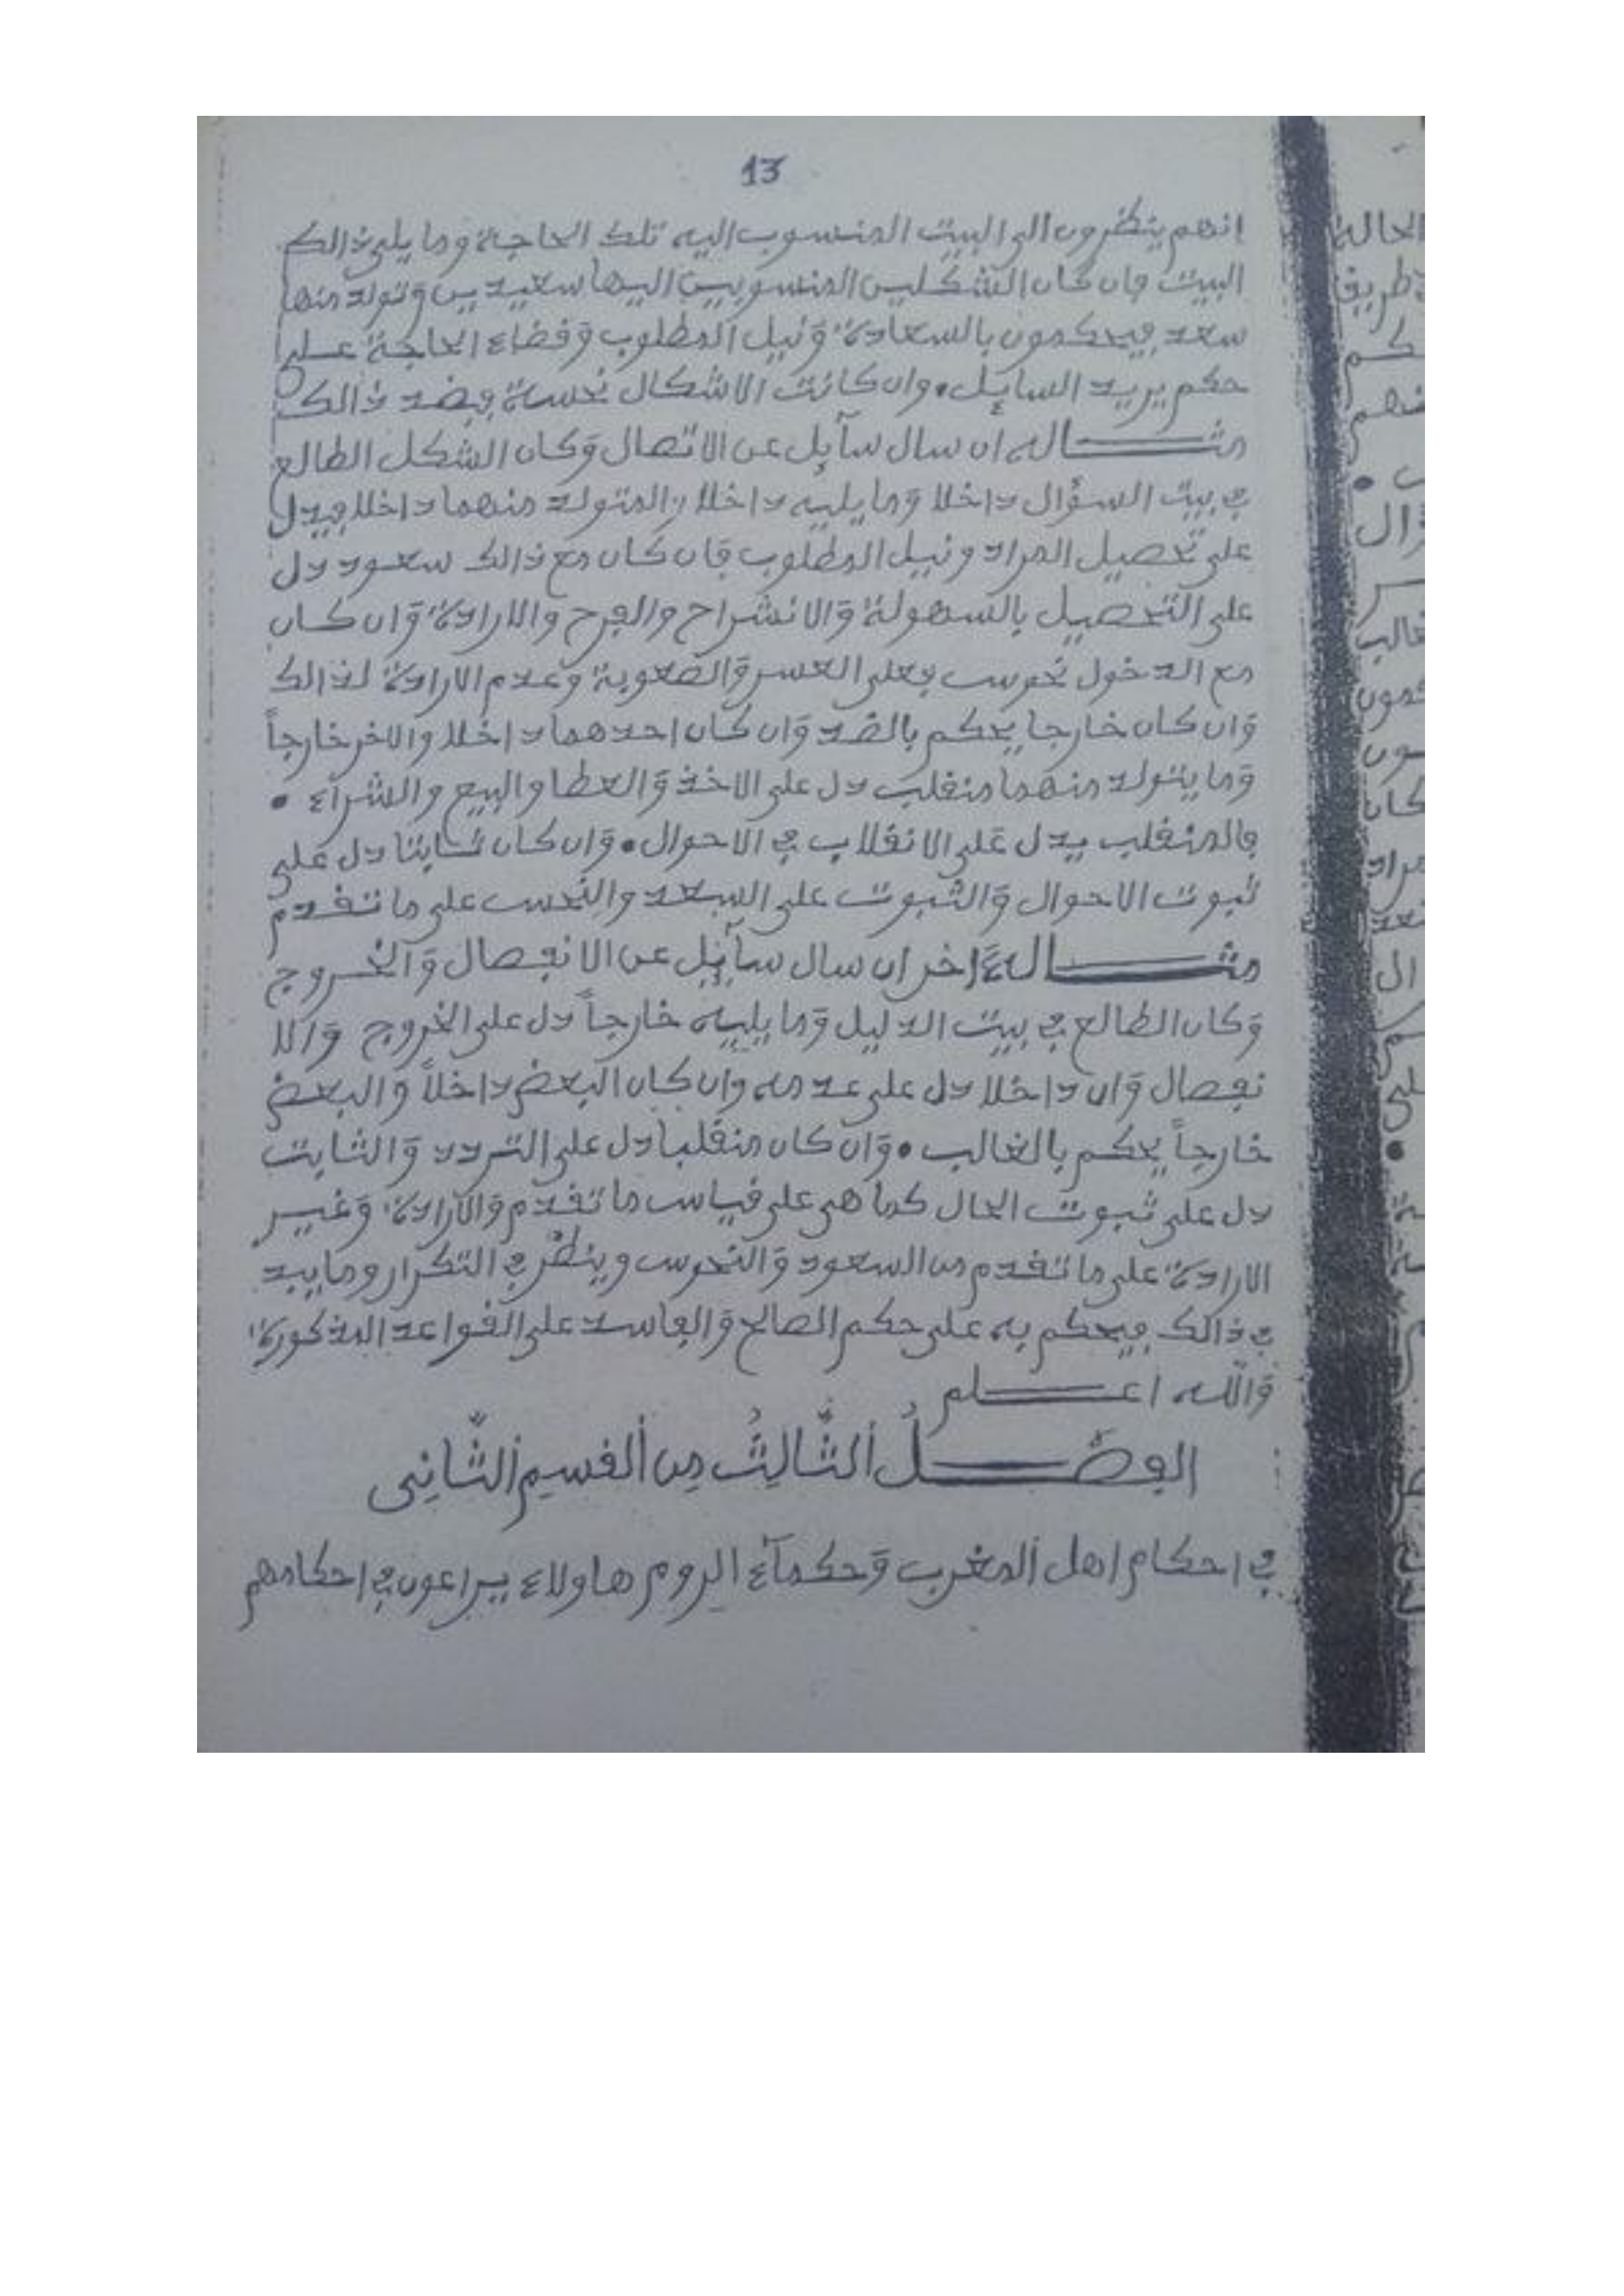 13
انهم ينظرون الى البيت المنسوب اليه تلك الحاجة وما يلى ذالك
البيت فان كان الشكلين المنسوبين اليها سعيدين وتولد منها
سعد فيحكمون بالسعادة وَنيل المطلوب وَقضاء الحاجة على
حكم يريد السايل • وان كانت الاشكال نحسة فبضد ذالك
مثـــاله ان سال سآيل عن الاتصال وَكان الشكل الطالع
في بيت السؤال داخلا وَما يليه داخلا والمتولد منهما داخلا فيدل
على تحصيل المراد ونيل المطلوب فان كان مع ذالك سعود دل
على التحصيل بالسهولة وَالانشراح والفرح والارادة وَان كان
مع الدخول نحوس فعلى العسر وَالصعوبة وَعدم الارادة لذالك
وَان كان خارجا يحكم بالضد وَان كان احدهما داخلا والاخر خارجاً
وَما يتولد منهما منقلب دل على الاخذ وَالعطا والبيع والشرآء •
فالمنقلب يدل عَلى الانقلاب في الاحوال • وَان كان ثابتا دل على
ثبوت الاحوال وَالثبوت على السعد والنحس على ما تقدم
مثـــاله ءَاخر ان سال سآيل عن الانفصال وَالخروج
وَكان الطالع في بيت الدليل وَما يليه خارجاً دل على الخروج وَالا
نفصال وَان داخلا دل على عدمه وان كان البعض داخلاً والبعض
خارجاً يحكم بالغالب • وَان كان منقلبا دل على التردد وَالثابت
دل على ثبوت الحال كما هى على قياس ما تقدم وَالارادة وَغير
الارادة على ما تقدم من السعود وَالنحوس وينظر في التكرار وما يبد
في ذالك فيحكم به على حكم الصالح وَالفاسد على القواعد المذكورة
وَالله اعـــلم
الفصـــلُ الثَّالِثُ مِن ألقسِم الثَّانِى
في احكام اهل ألمغرب وَحكمآء الروم هاولاء يراعون في احكامهم
الحالة
كم
ال
كان